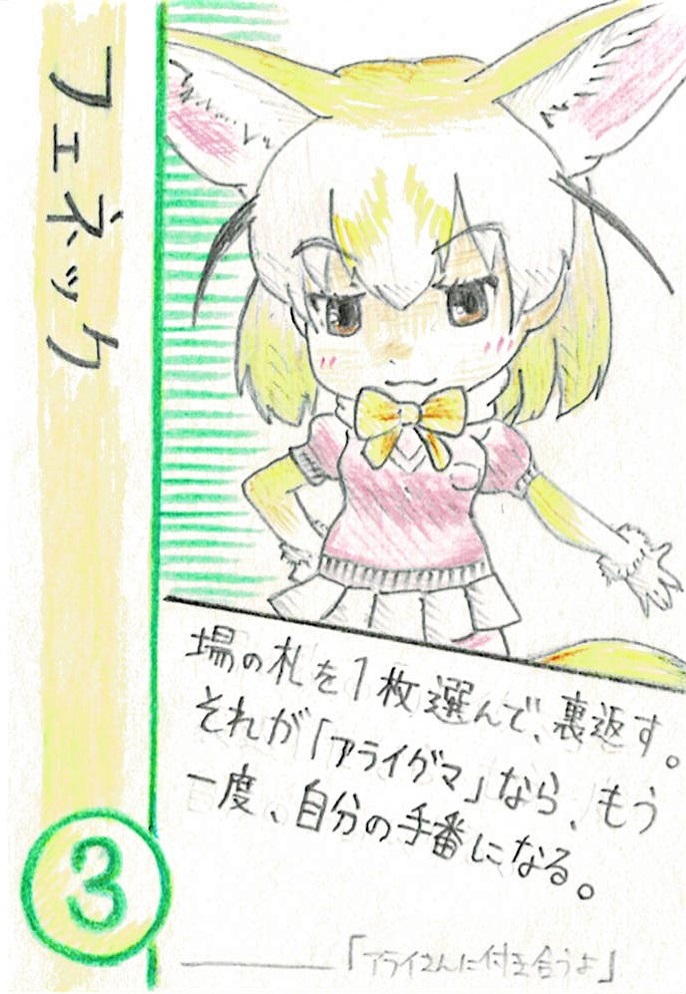 フェネック
場の札を1枚選んで、裏返す。
それが「アライグマ」なら、もう
一度、自分の手番になる。
3
「アライさんに付き合うよ」